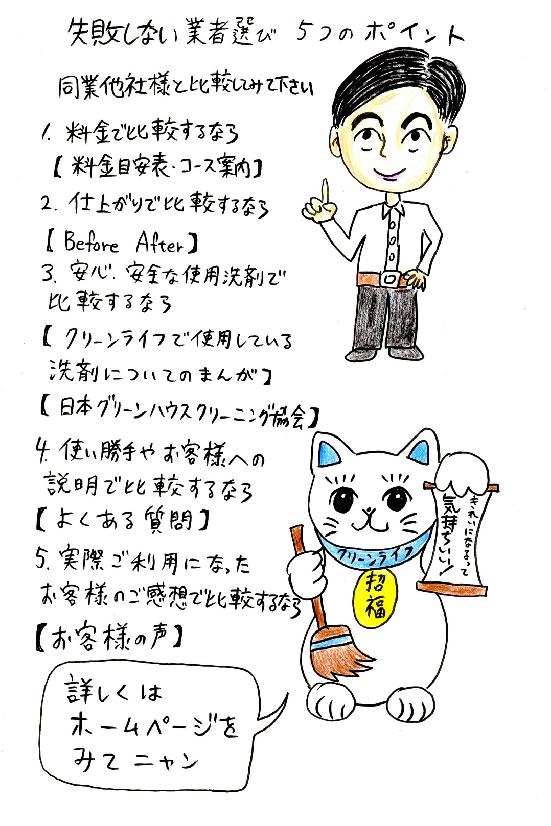 失敗しない業者選び 5つのポイント
同業他社様と比較してみて下さい
1. 料金で比較するなら
【料金目安表・コース案内】
2. 仕上がりで比較するなら
【Before After】
3. 安心・安全な使用洗剤で
比較するなら
【クリーンライフで使用している
洗剤についてのまんが】
【日本グリーンハウスクリーニング協会】
4. 使い勝手やお客様への
説明で比較するなら
【よくある質問】
5. 実際ご利用になった
お客様のご感想で比較するなら
【お客様の声】
詳しくは
ホームページを
みてニャン
クリーンライフ
招福
きれいになって
気持ちいい!